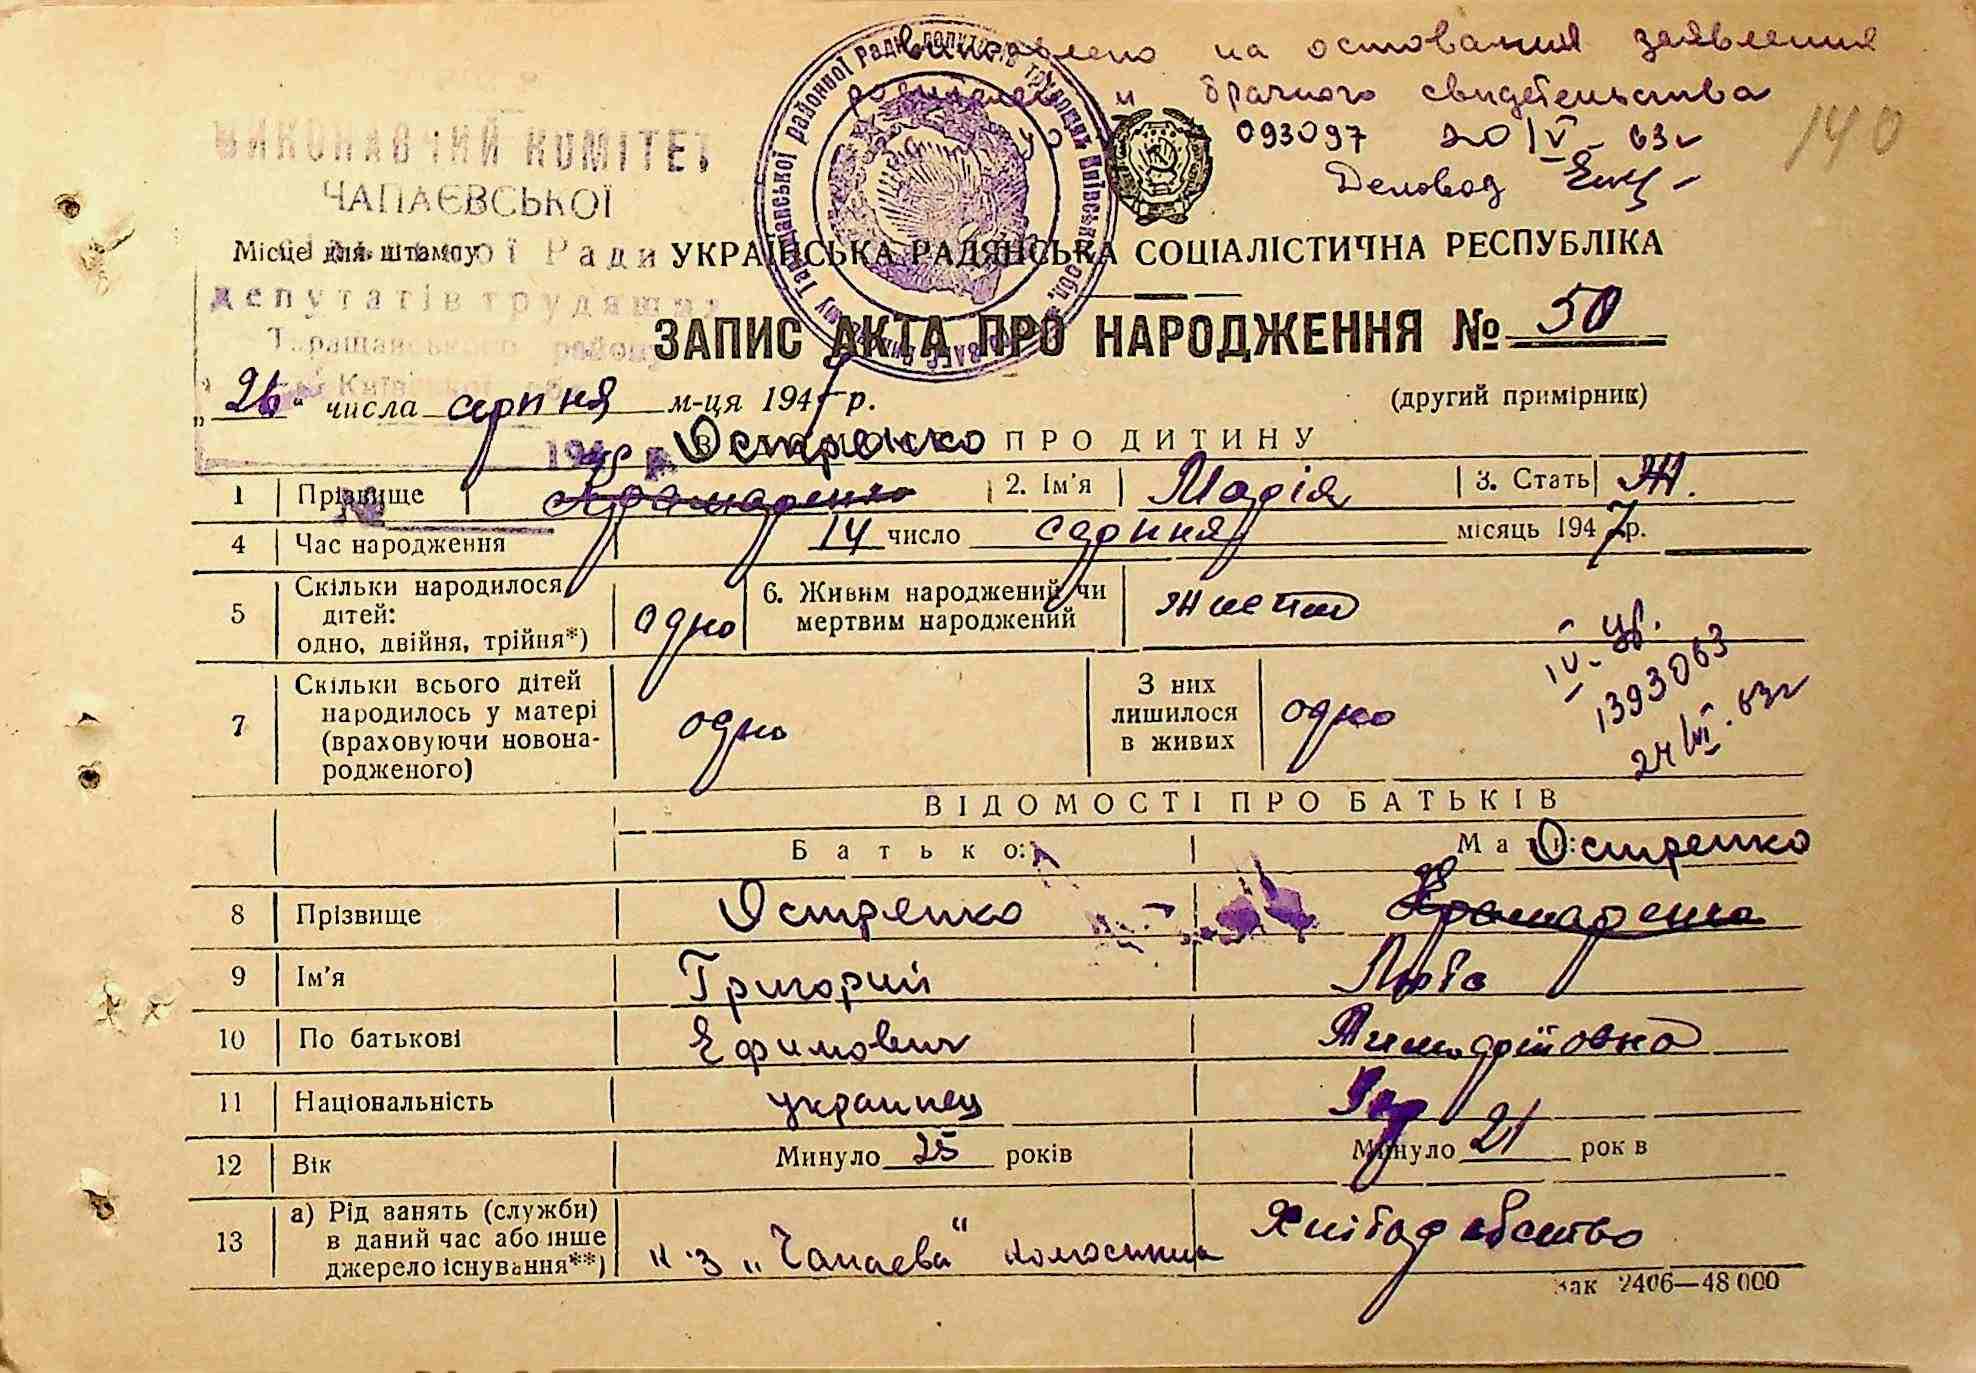 виправлено на основании заявления
родителей и брачного свидетельства
093097 20 IV - 63 г
Деловод
140
ВИКОНАВЧИЙ КОМІТЕТ
ЧАПАЄВСЬКОЇ
ої Ради
депутатів трудящих
Таращанського району
Київської обл.
194 р.
№
Місце для штампу
УКРАЇНСЬКА РАДЯНСЬКА СОЦІАЛІСТИЧНА РЕСПУБЛІКА
ЗАПИС АКТА ПРО НАРОДЖЕННЯ № 50
(другий примірник)
„26“ числа серпня м-ця 1947 р.
Остренко ПРО ДИТИНУ
1 Прізвище Крамаренко 2. Ім'я Марія 3. Стать Ж.
4 Час народження 14 число серпня місяць 1947 р.
5 Скільки народилося дітей: одно, двійня, трійня*) одно 6. Живим народжений чи мертвим народжений живим
IV - цр.
1393063
24/VI. 63 г
7 Скільки всього дітей народилось у матері (враховуючи новонародженого) одно З них лишилося в живих одно
ВІДОМОСТІ ПРО БАТЬКІВ
Батько: Мати: Остренко
8 Прізвище Остренко Крамаренко
9 Ім'я Григорий
10 По батькові Ефимович Тимофіївна
11 Національність украинец Укр
12 Вік Минуло 25 років Минуло 21 років
13 а) Рід занять (служби) в даний час або інше джерело існування**) к-з „Чапаева“ Хліборобство
Зак 2406—48 000